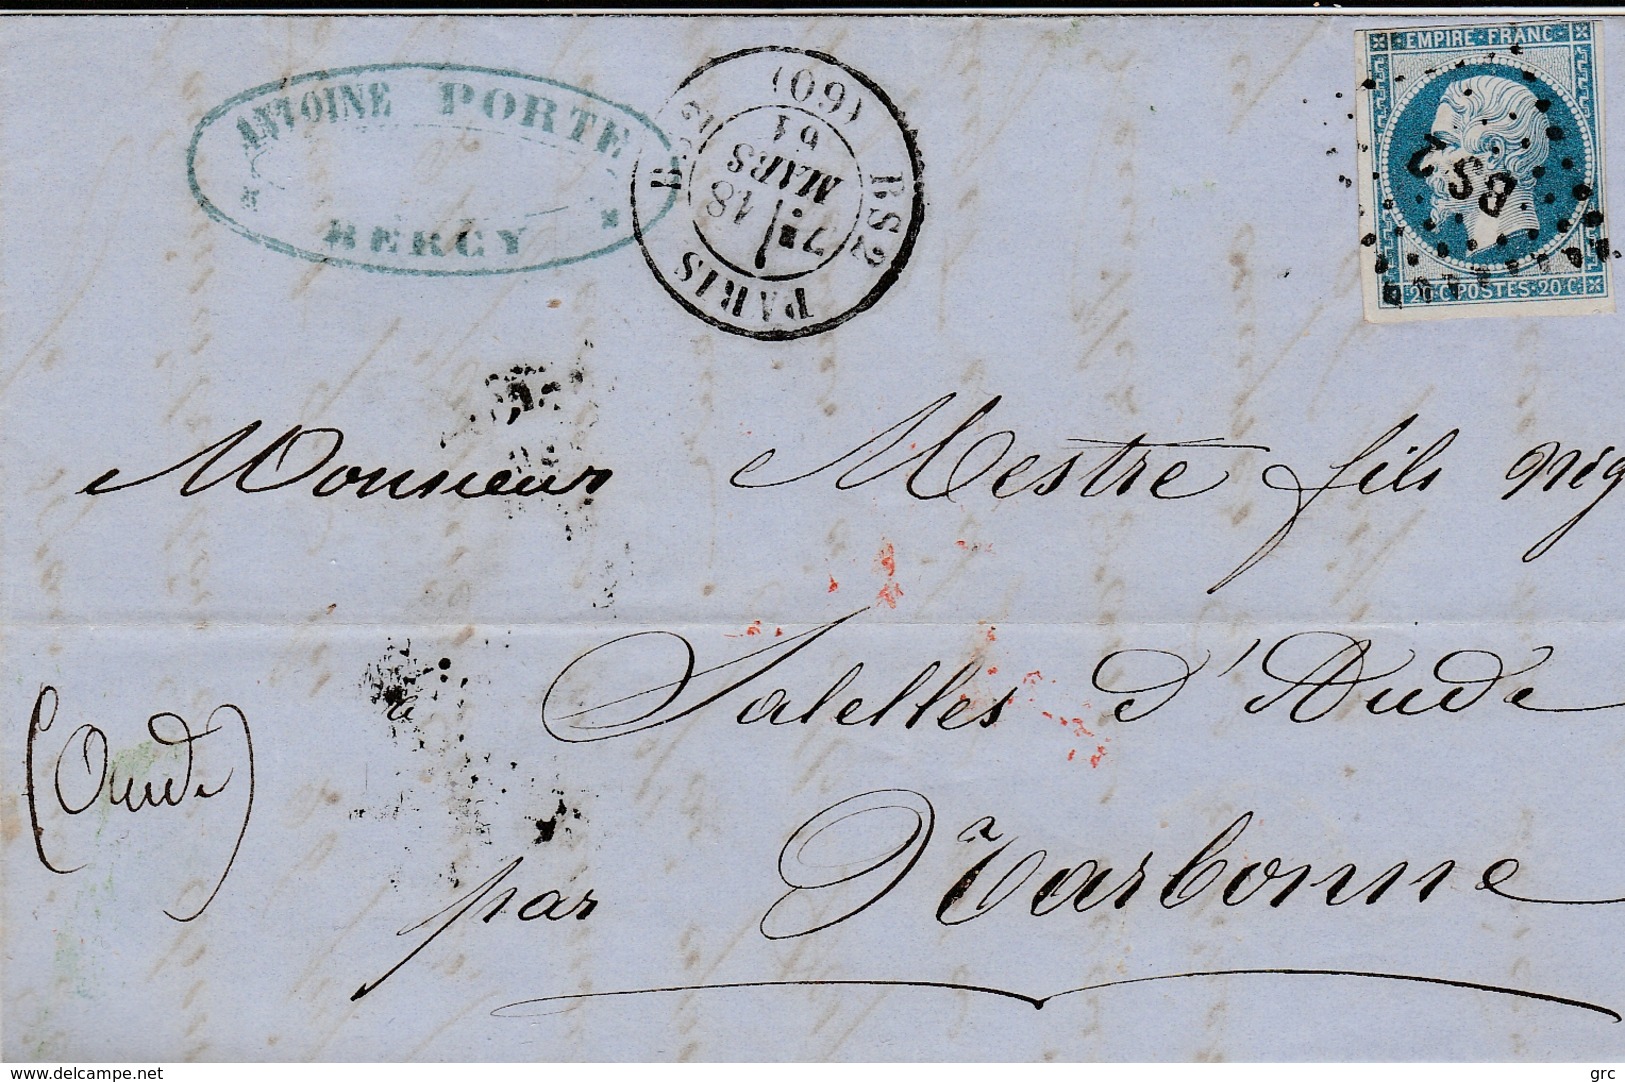 ANTOINE PORTE
BERCY
PARIS
BS2
BS2
(60)
7E
18
MARS
61
EMPIRE · FRANC ·
BS2
20·C·POSTES·20·C
Monsieur Mestre fils nég
Salelles d'Aude
(Aude)
par Narbonne
www.delcampe.net
grc